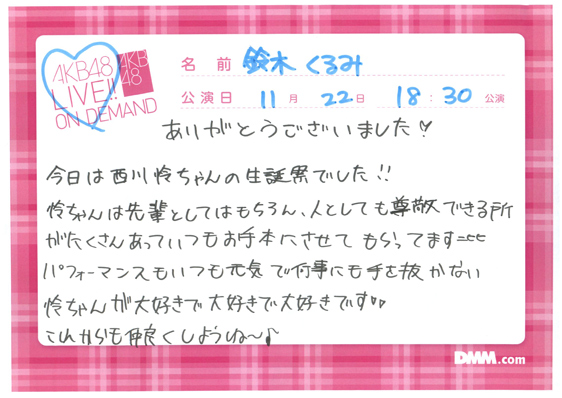 AKB48
LIVE!!
ON DEMAND
AKB
48
名 前 鈴木くるみ
公演日 11月22日 18:30公演
ありがとうございました♡
今日は西川怜ちゃんの生誕祭でした!!
怜ちゃんは先輩としてはもちろん、人としても尊敬できる所
がたくさんあっていつもお手本にさせてもらってます
パフォーマンスもいつも元気で何事にも手を抜かない
怜ちゃんが大好きで大好きで大好きです♡♡
これからも仲良くしようね〜♪
DMM.com